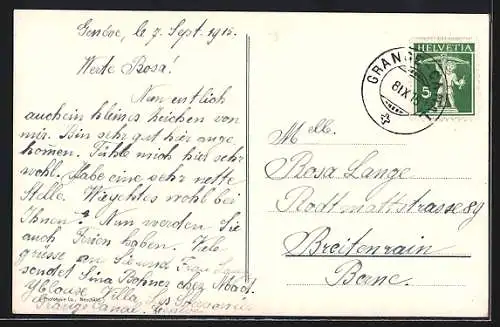 Genève, le 7. Sept. 1915.
Werte Rosa!
Nun entlich
auch ein kleines zeichen von
mir. Bin sehr gut hier ange
kommen. Fühle mich hier sehr
wohl. Habe eine sehr nette
Stelle. Wie gehts wohl bei
Ihnen? Nun werden Sie
auch Ferien haben. Viele
grüsse an Sie und Frau
sendet Lina Bohner chez Mad.
Villa
HELVETIA
5
GRAN
Mlle.
Rosa Lange
Rodtmattstrasse 89
Breitenrain
Berne.